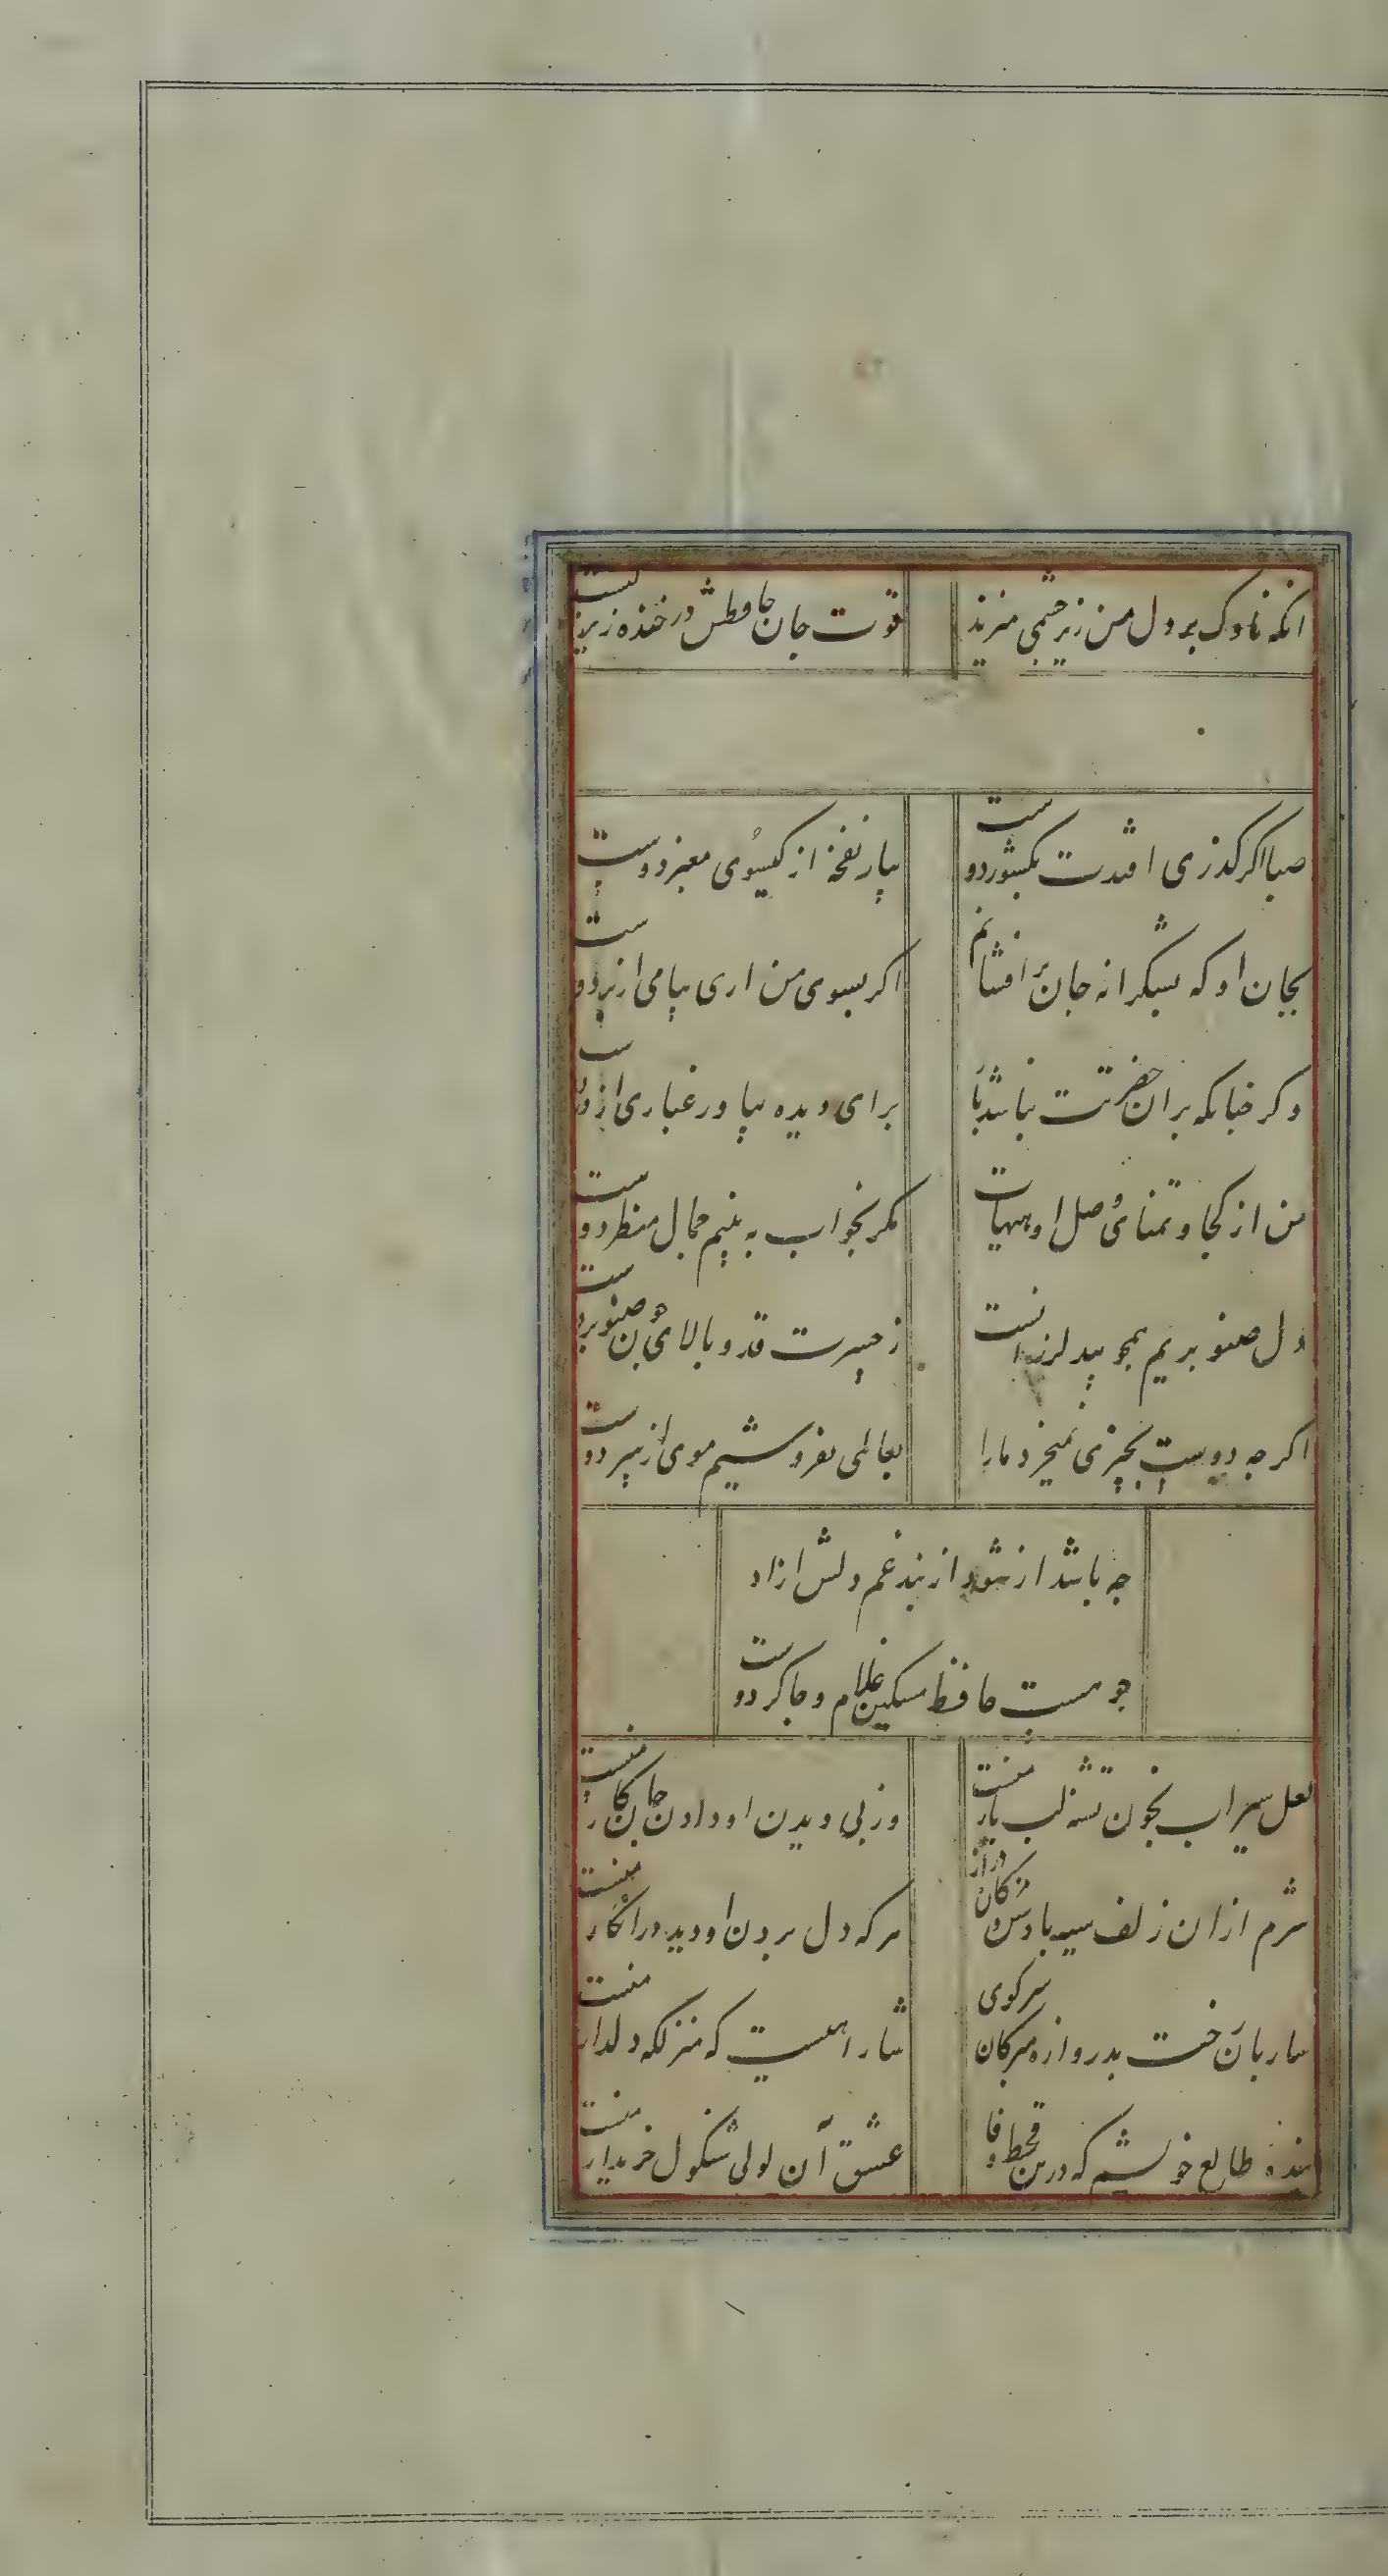 انکه ناوک بر دل من زیر چشمی میزند
قوت جان حافظش در خنده زیر لبست
صبا اکر کذری افتدت بکشور دوست
بیار نفخه از کیسوی معنبر دوست
بجان او که بشکرانه جان بر افشانم
اکر بسوی من اری پیامی از بر دوست
وکر چنانکه بران حضرتت نباشد بار
برای دیده بیاور غباری از در دوست
من از کجا و تمنای وصل او هیهات
مکر بخواب به بینم جمال منظر دوست
دل صنوبریم همچو بید لرزانست
ز حسرت قد و بالای چون صنوبر دوست
اکرچه دوست بچیزی نمیخرد ما را
بعالمی نفروشیم موی از سر دوست
چه باشد ار شود از بند غم دلش ازاد
چو هست حافظ مسکین غلام و چاکر دوست
لعل سیراب بخون تشنه لب یار منست
وز پی دیدن او دادن جان کار منست
شرم از ان زلف سیه بادش و مژکان دراز
هر که دل بردن او دید در انکار منست
ساربان رخت بدروازه مبر کان سر کوی
شاراهیست که منزلکه دلدار منست
بنده طالع خویشم که درین قحط وفا
عشق آن لولی شنکول خریدار منست